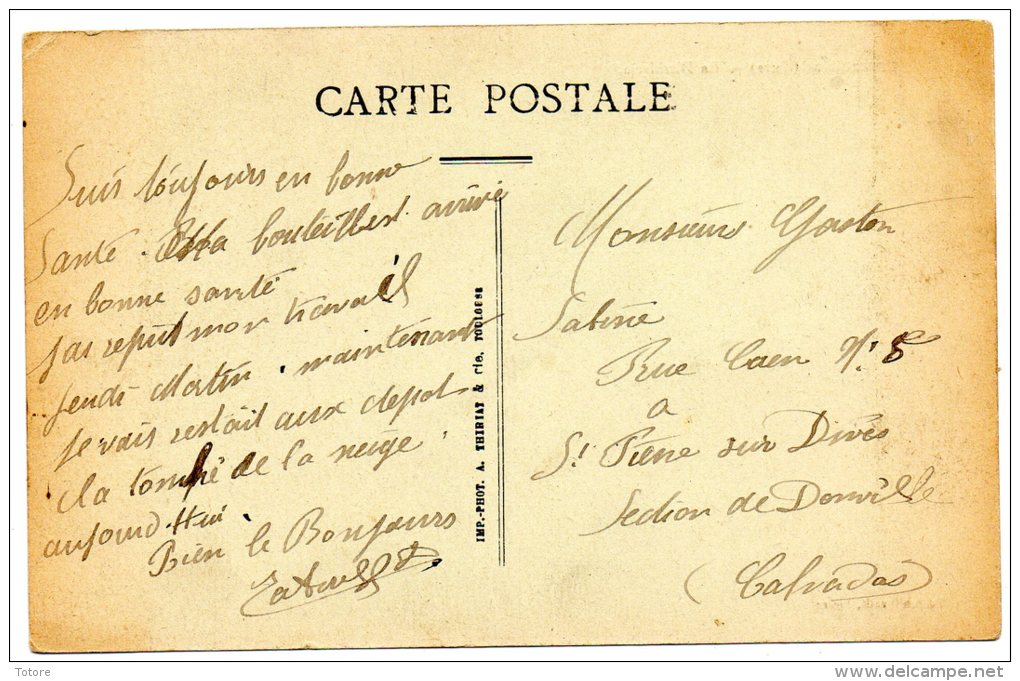 CARTE POSTALE
Suis toujours en bonne
Santé. la bouteille est arrivé
en bonne santé
jai reput mon travail
jeudi Matin. maintenant
je vais restait aux depot
ila tombé de la neige
aujourd-Hui.
Bien le Bonjours
IMP.-PHOT. A. THIRIAT & Cie, TOULOUSE
Monsieur Gaston
Sabine
Rue Caen N: 8
a
St Pierre sur Dives
Section de Donville
(Calvados)
Totore
www.delcampe.net